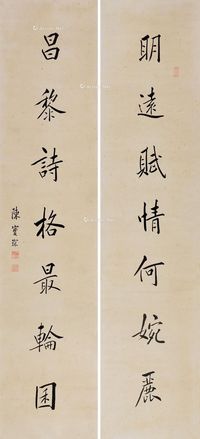 明遠賦情何婉麗
昌黎詩格最輪囷
陳寶琛